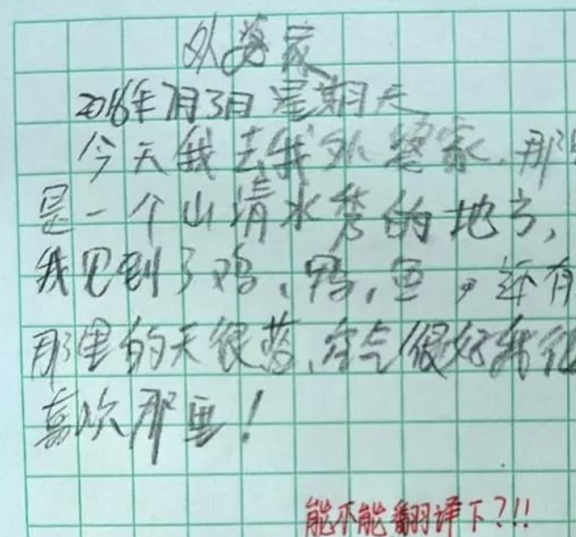 外婆家
2016年7月3日 星期天
今天我去我外婆家,那
是一个山清水秀的地方,
我见到了鸡、鸭、鱼,还有
那里的天很蓝、空气很好我很
喜欢那里!
能不能翻译下?!!